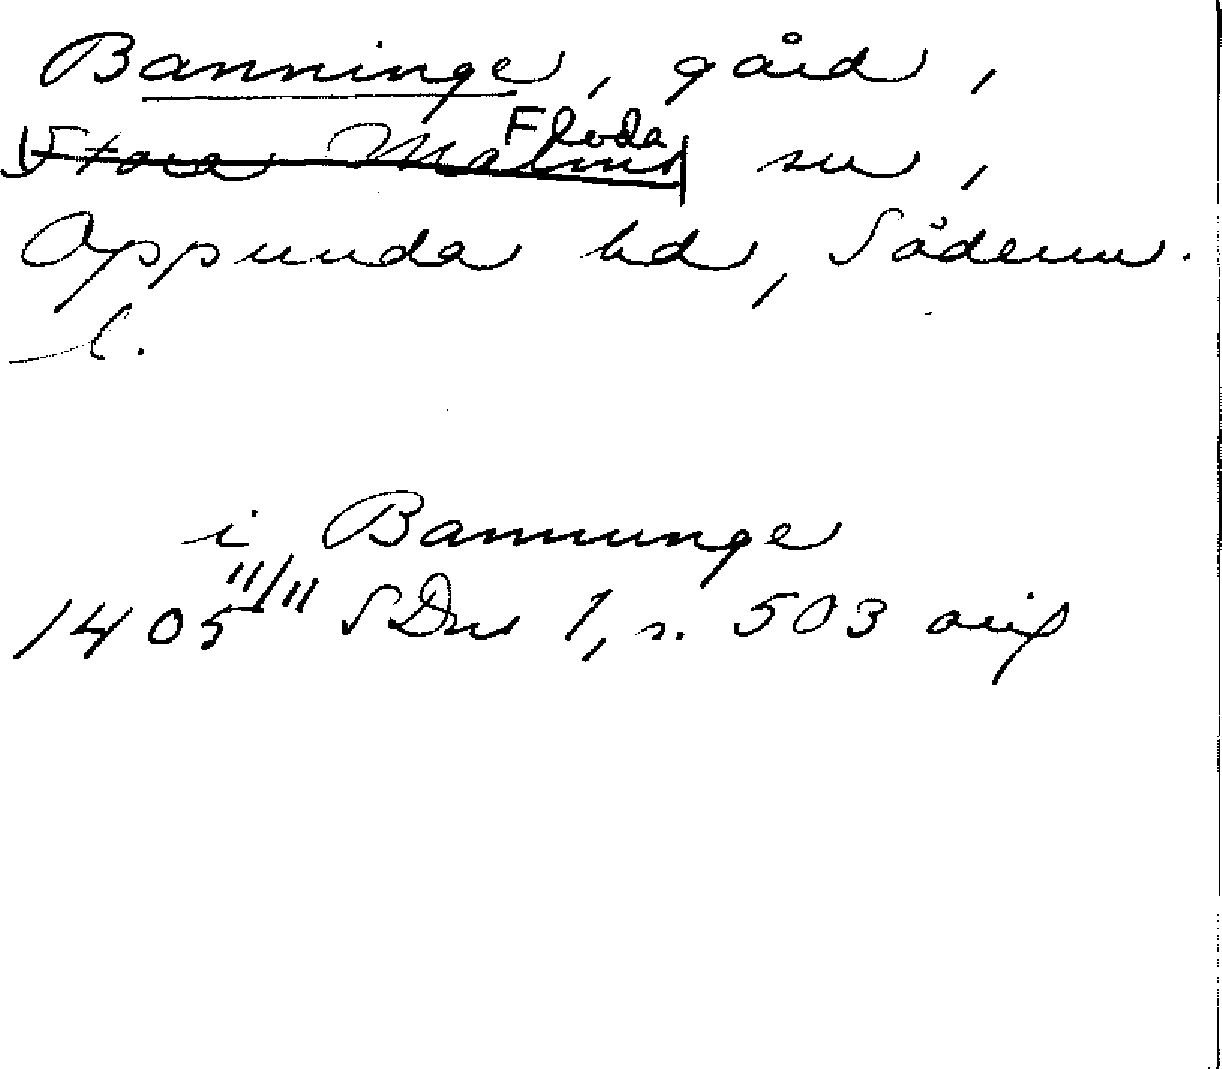 Banninge, gård,
Floda
Stora Malms sn,
Oppunda hd, Söderm.
l.
i Bannunge
1405 11/11 SDns 1, s. 503 avskr